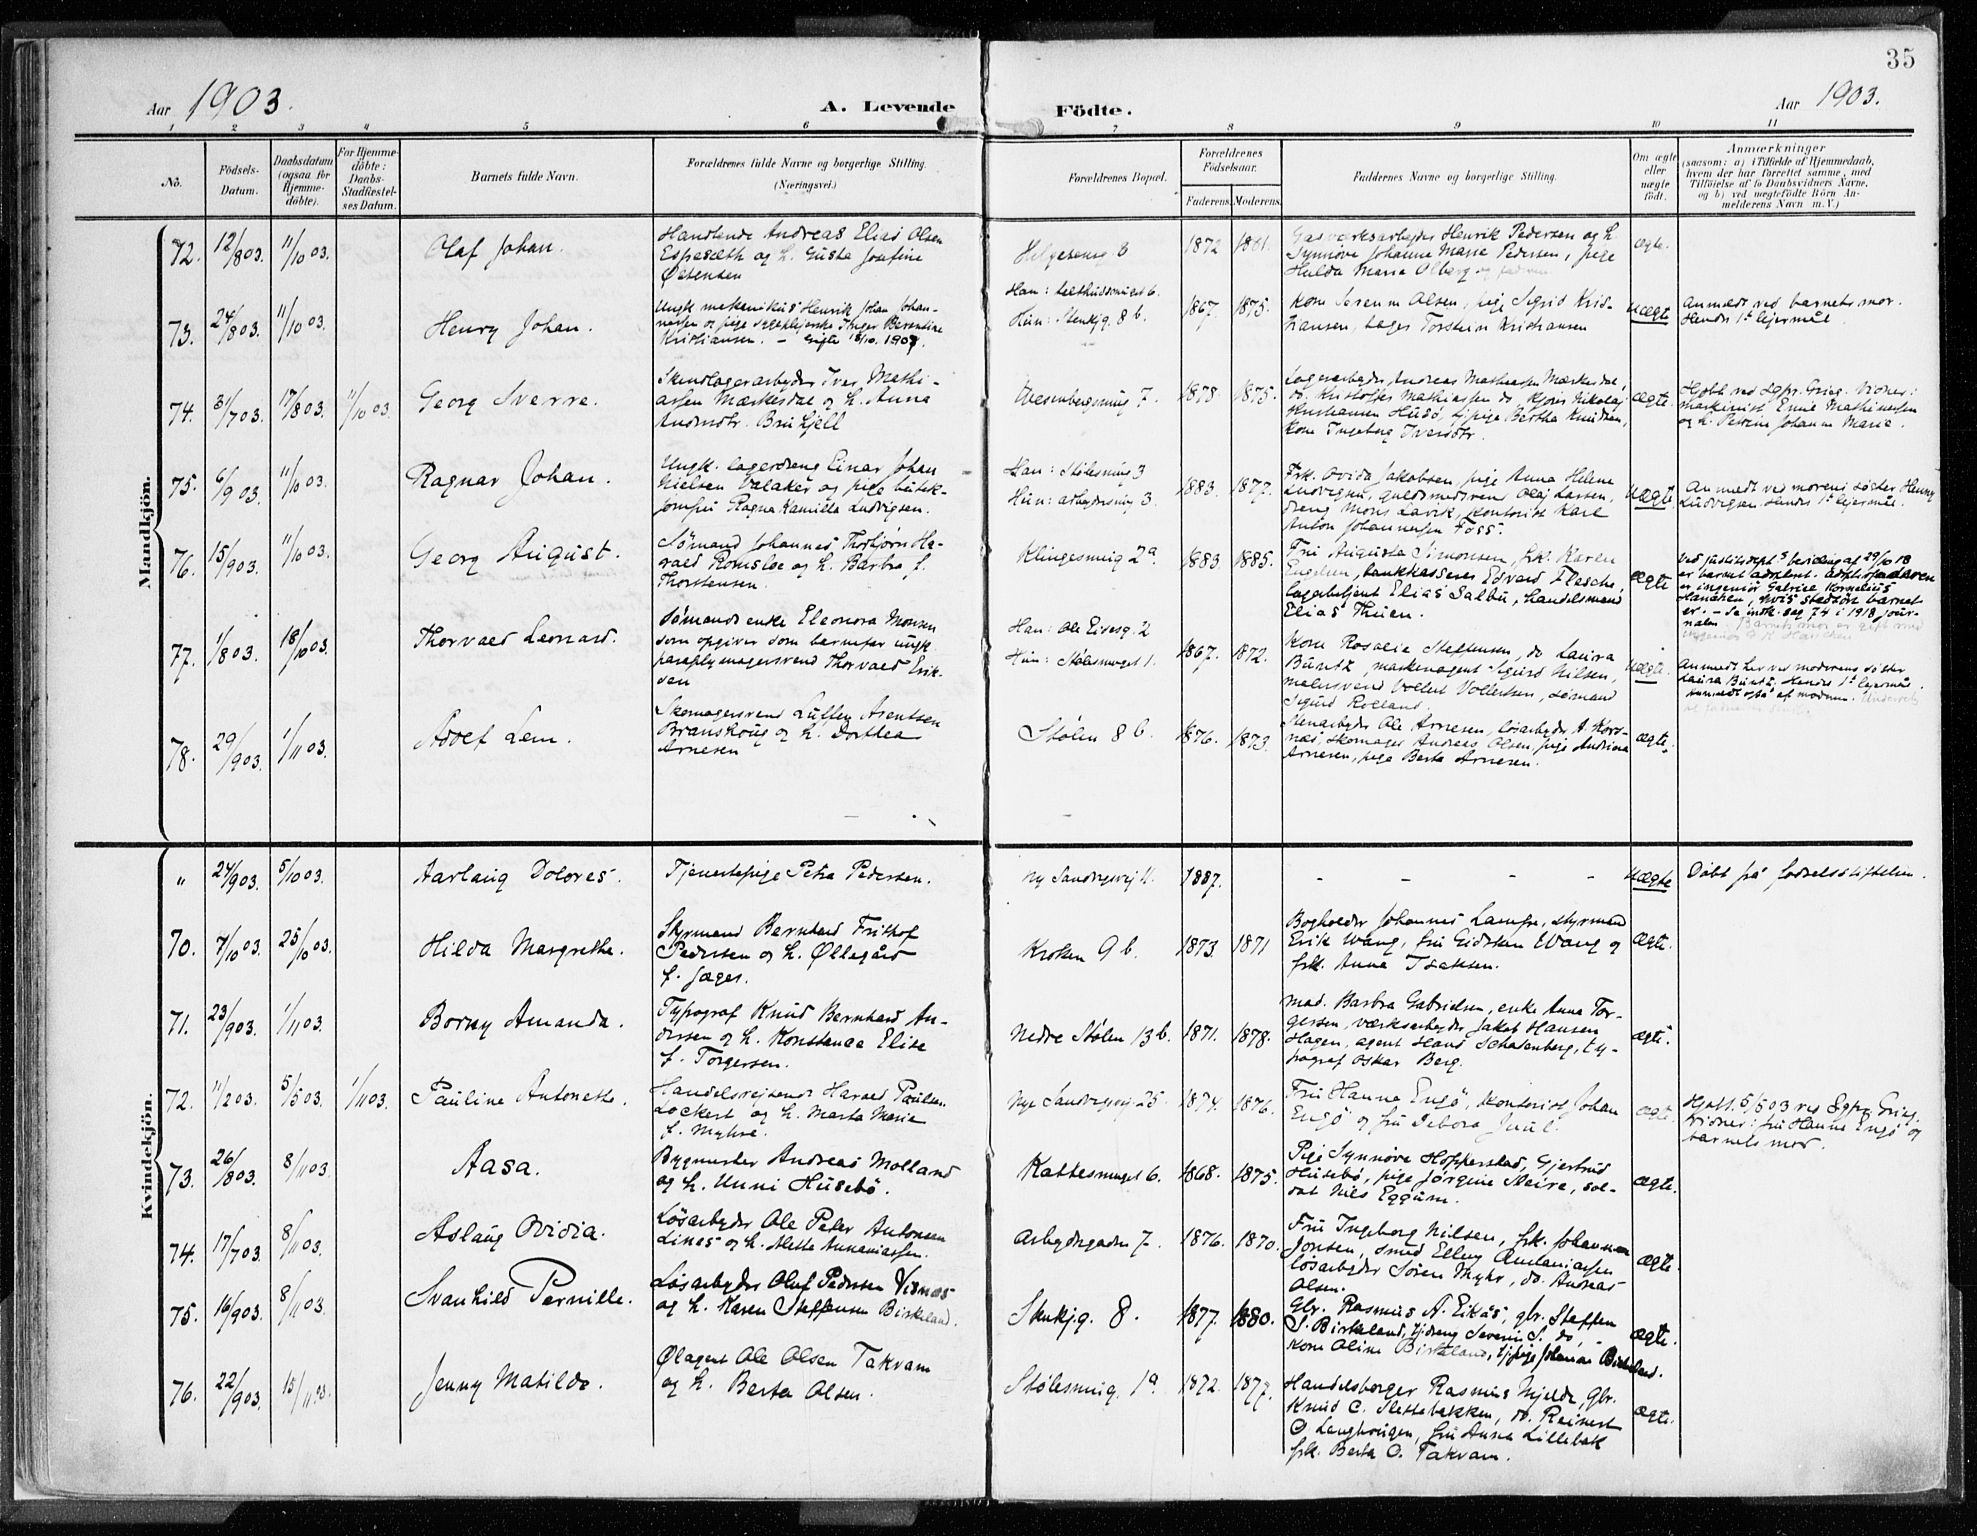 35
Aar 1903.
A. Levende Födte.
Aar 1903.
1 2 3 4 5 6 7 8 9 10 11
No.
Födsels-Datum.
Daabsdatum (ogsaa för Hjemme-döbte).
For Hjemme-döbte: Daabs-Stadfæstel-ses Datum.
Barnets fulde Navn.
Forældrenes fulde Navne og borgerlige Stilling.
(Næringsvei.)
Forældrenes Bopæl.
Forældrenes Födselsaar.
Faderens. Moderens.
Faddernes Navne og borgerlige Stilling.
Om ægte eller uægte födt.
Anmærkninger
(saasom: a) i Tilfælde af Hjemmedaab,
hvem der har forrettet samme, med
Tilföielse af to Daabsvidners Navne,
og b) ved uægtefödte Börn An-
melderens Navn m. V.)
Mandkjön.
72. 12/8 03. 11/10 03.
Olaf Johan.
Handlende Andreas Elias Olsen
Espesæth og h. Gusta Josefine
Helgesensg 8
1872 1881.
Gasværksarbejder Henrik Pedersen og h.
Synnöve Johanne Marie Pedersen, pige
Hulda Marie Olberg
ægte.
73. 24/8 03. 11/10 03.
Henry Johan.
Ungk. mekanikus Henrik Johan Johan-
nesen og pige sygeplejerske Inger Berentine
Kristiansen.
Hun: Stenkjg. 8 b.
1867. 1875.
Kone Serenn Olsen, pige Sigrid Kris-
tiansen, bager Torstein Kristiansen
uægte
Anmeldt ved barnets mor.
Hendes 1st lejermål.
74. 31/7 03. 17/8 03. 11/10 03.
Georg Sverre.
Iver Mathi-
assen Mærkesdal og h. Anna
Andersdtr. Brukjell
1878. 1875.
Lagerarbejder Andreas Mathiassen Mærkesdal,
do. Kristoffer Mathiassen do,
Kristiansen Husö, tj.pige Bertha Knudsen,
kone Ingeborg Iversdtr.
ægte.
Hjdbt ved Sgpr. Grieg. Vidner:
maskinist
og h. Petrine Johanne Marie.
75. 6/9 03. 11/10 03.
Ragnar Johan.
Ungk. lagerdreng Einar Johan
Nielsen Valaker og pige butik-
jomfru Ragna Kamilla Ludvigsen.
Han: Stölesmug 3
Hun: 3.
1883. 1877.
Frk. Ovida Jakobsen, pige Anna Helene
Ludvigsen, guldsmedsvend Olaf Larsen,
dreng Mons Lavik, kontorist Karl
Anton Johannesen Foss.
uægte.
Anmeldt ved morens söster Henny
Ludvigsen. Hendes 1st lejermål.
76. 15/9 03. 11/10 03.
Georg August.
Sömand Johannes Thorbjörn Ha-
rald Romslo og h. Barbra f.
Thorstensen.
Klingesmug 2a.
1883. 1885.
Fru Augusta Simonsen, frk. Karen
Engelsen, bankkasserer Edvard Flesche,
lagerbetjent Elias Salbu, handelsmand
Elias Thuen.
ægte
er barnet adopteret.
er ingeniör Gabriel Kornelius
Hanchen, hvis stedsön barnet
er. - Se indk. sag 74 i 1918 jour-
nalen. Barnets mor er gift med
77. 1/8 03. 18/10 03.
Thorvald Leonard.
Sömands enke Eleonora Monsen
som opgiver som barnefar ungk.
paraplymagersvend Thorvald Erik-
sen
Han: Ole Eidesg. 2
Hun: Stölesmuget 1.
1867. 1872.
Kone Rosalie Steffensen, do Laura
Buntz, maskinagent Sigurd Nilsen,
malersvend Vollert Vollertsen, sömand
Sigurd Rolland.
uægte.
Anmeldt her ved moderens söster
Laura Buntz. Hendes 1st lejermål.
Anmeldt også af moderen.
78. 29/9 03. 1/11 03.
Adolf Lem.
Skomagersvend Lütken Arentsen
Branskoug og h. Dorthea
Arnesen
Stölen 8 b.
1876. 1873.
Stenarbejder Ole Arnesen, lösarbejder A. Kors-
næs, skomager Andreas Olsen, pige Andriane
Arnesen, pige Berta Arnesen.
ægte.
Kvindekjön.
" 24/9 03. 5/10 03.
Aarlaug Dolores.
Tjenestepige Petra Pedersen.
Ny Sandvigsvej 11.
1887.
- - - -
uægte
Döbt på födselsstiftelsen.
70. 7/10 03. 25/10 03.
Hilda Margrethe.
Styrmand Bernhard Frithof
Pedersen og h. Ollegård
f. Jæger.
Kroken 9 b.
1873. 1871
Bogholder Johannes Lampe, styrmand
Erik Wang, fru Gidsken Wang og
frk. Anna Isaksen.
ægte.
71. 23/9 03. 1/11 03.
Borny Amanda.
Typograf Knud Bernhard An-
dersen og h. Konstance Elise
f. Torgersen.
Nedre Stölen 13 b.
1871. 1878.
Mad. Barbra Gabrielsen, enke Anna Tor-
gersen, værksarbejder Jakob Hansen
Hagen, agent Hans Schatenberg, ty-
pograf Oskar Berg.
ægte.
72. 11/2 03. 5/5 03. 1/11 03.
Pauline Antonette.
Handelsrejsende Harald Paulsen
Lockert og h. Marta Marie
f. Myhre.
Nye Sandvigsvej 25.
1874. 1876.
Fru Hanna Engö, kontorist Johan
Engö og fru Debora Juul.
ægte.
Hjdbt. 5/5 03 ved Sgpr. Grieg.
Vidner: fru Hanna Engö og
barnets mor.
73. 26/8 03. 8/11 03.
Aasa.
Bygmester Andreas Molland
og h. Unni Husebö.
Kattesmuget 6.
1868. 1875.
Pige Synnöve Hopperstad, Gjertrud
Husebö, pige Jörgine Steire, sol-
dat Nils Eggum.
ægte.
74. 17/7 03. 8/11 03.
Aslaug Ovidia.
Lösarbejder Ole Peter Antonsen
Lines og h. Mette Annaniassen.
Arbejdergaden 7.
1876. 1870.
Fru Ingeborg Nilsen, frk. Johanna
Jonsen, smed Elling Annaniassen
lösarbejder Sören Myhr, do. Andreas
Olsen.
ægte.
75. 16/9 03. 8/11 03.
Svanhild Pernille.
Lösarbejder Oluf Pedersen Visnæs
og h. Karen Steffensen Birkeland.
Stenkjg. 8.
1877. 1880.
Gbr. Rasmus A. Eikås, gbr. Steffen
S. Birkeland, tj.dreng Severin S. do,
kone Oline Birkeland, tj.pige Johanne Birkeland.
ægte.
76. 22/9 03. 15/11 03.
Jenny Matilde.
Ølagent Ole Olsen Takvam
og h. Berta Olsen.
Stölesmug. 1a.
1872. 1877.
Handelsborger Rasmus Mjelde, gbr.
Knud C. Slettebakken, do. Reinert
O Langhougen, fru Anna Lillebøk
frk. Berta O. Takvam.
ægte.